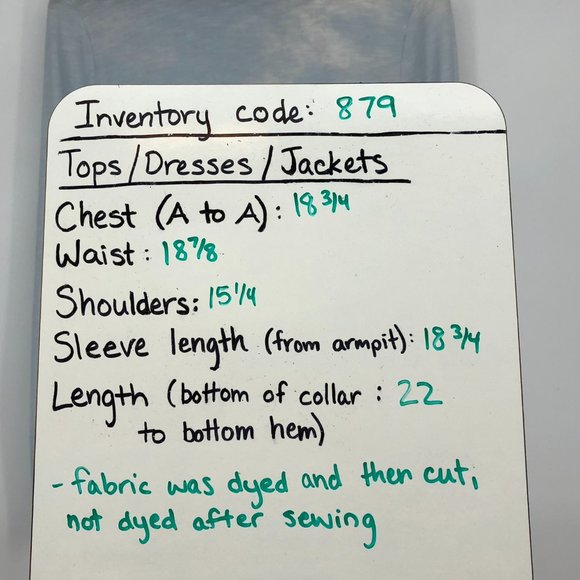 Inventory code: 879
Tops/Dresses/Jackets
Chest (A to A): 18 3/4
Waist: 18 7/8
Shoulders: 15 1/4
Sleeve length (from armpit): 18 3/4
Length (bottom of collar : 22
to bottom hem)
- fabric was dyed and then cut,
not dyed after sewing